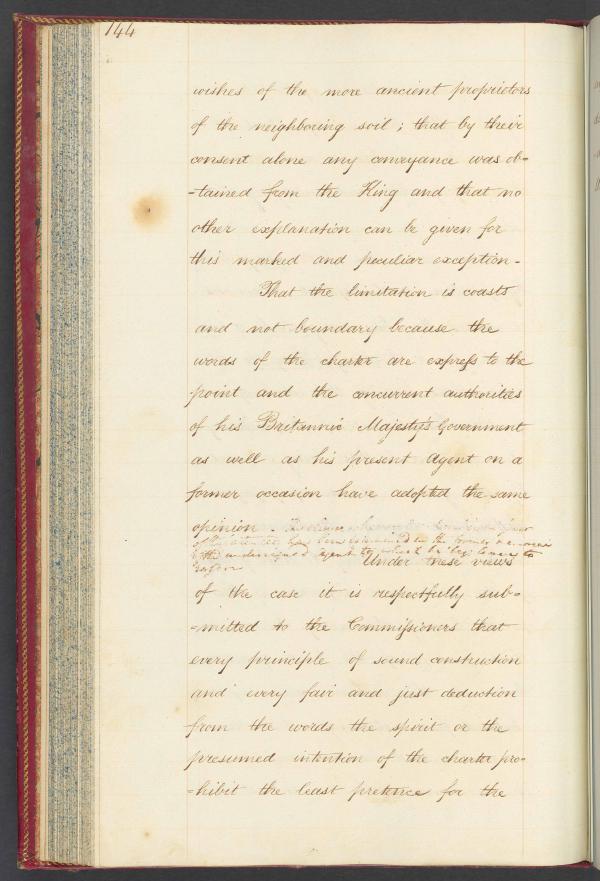 144
wishes of the more ancient proprietors
of the neighboring soil; that by their
consent alone any conveyance was ob-
-tained from the King and that no
other explanation can be given for
this marked and peculiar exception -
That the limitation is coasts
and not boundary because the
words of the charter are express to the
point and the concurrent authorities
of his Britannic Majesty's Government
as well as his present Agent on a
former occasion have adopted the same
opinion.
has been in the former
the undersigned agent to which he begs leave to
Under these views
of the case it is respectfully sub-
-mitted to the Commissioners that
every principle of sound construction
and every fair and just deduction
from the words the spirit or the
presumed intention of the charter pro-
-hibit the least pretence for the